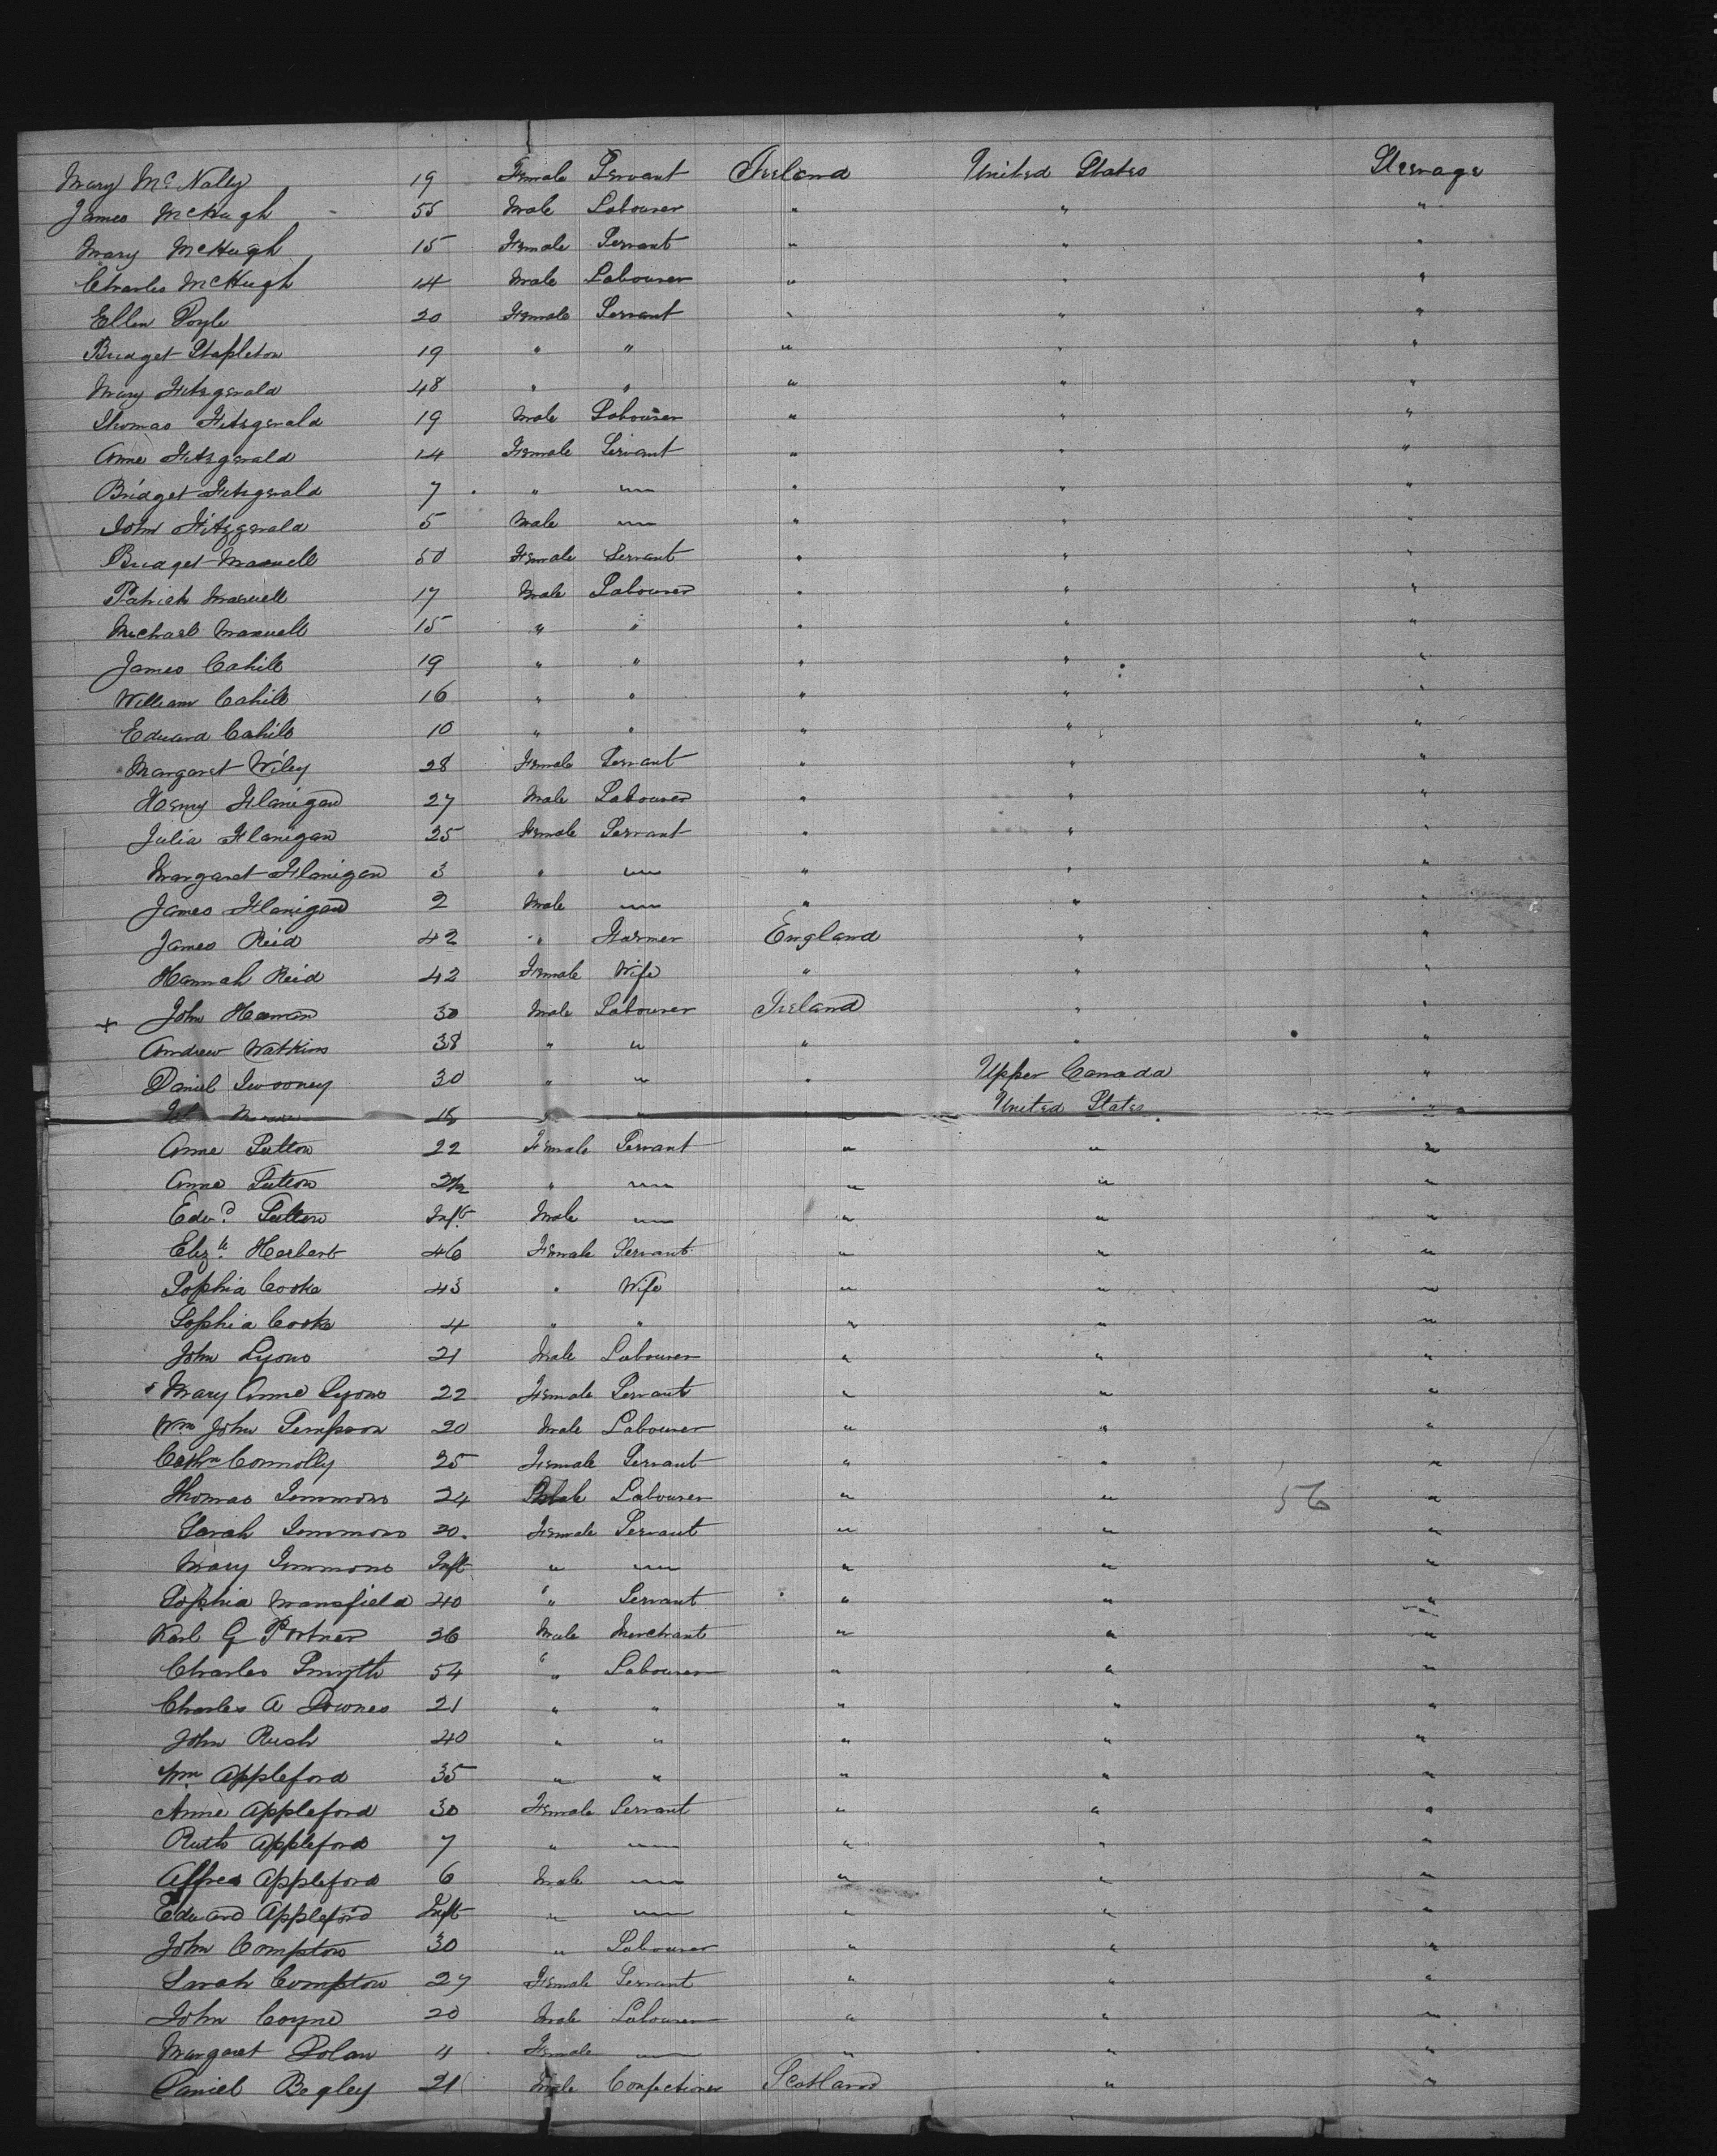 Mary McNally 19 Female Servant Ireland United States Steerage
James McHugh 55 Male Labourer " " "
Mary McHugh 15 Female Servant " " "
Charles McHugh 14 Male Labourer " " "
Ellen Doyle 20 Female Servant " " "
Bridget Stapleton 19 " " " " "
Mary Fitzgerald 48 " " " " "
Thomas Fitzgerald 19 Male Labourer " " "
Anne Fitzgerald 14 Female Servant " " "
Bridget Fitzgerald 7 " — " " "
John Fitzgerald 5 Male — " " "
Bridget Maxwell 50 Female Servant " " "
Patrick Maxwell 17 Male Labourer " " "
Michael Maxwell 15 " " " " "
James Cahill 19 " " " " "
William Cahill 16 " " " " "
Edward Cahill 10 " " " " "
Margaret Wiley 28 Female Servant " " "
Henry Flanigan 27 Male Labourer " " "
Julia Flanigan 25 Female Servant " " "
Margaret Flanigan 3 " — " " "
James Flanigan 2 Male — " " "
James Reid 42 " Farmer England " "
Hannah Reid 42 Female Wife " " "
+ John 30 Male Labourer Ireland " "
Andrew Watkins 38 " " " " "
Daniel Twooney 30 " " " Upper Canada "
18 " " " United States "
Anne Sutton 22 Female Servant " " "
Anne Sutton 2½ " — " " "
Edwd. Sutton Inft Male — " " "
Elizth. Herbert 46 Female Servant " " "
Sophia Cooke 43 " Wife " " "
Sophia Cooke 4 " " " " "
John Lyons 21 Male Labourer " " "
Mary Anne Lyons 22 Female Servant " " "
Wm John Simpson 20 Male Labourer " " "
Cathn Connolly 25 Female Servant " " "
Thomas Simmons 24 Male Labourer " " 56 "
Sarah Simmons 20 Female Servant " " "
Mary Simmons Inft " — " " "
Sophia Mansfield 40 " Servant " " "
Karl G Portner 26 Male Merchant " " "
Charles Smyth 54 " Labourer " " "
Charles A Downes 21 " " " " "
John Rush 40 " " " " "
Wm Appleford 35 " " " " "
Anne Appleford 30 Female Servant " " "
Ruth Appleford 7 " — " " "
Alfred Appleford 6 Male — " " "
Edward Appleford Inft " — " " "
John Compton 30 " Labourer " " "
Sarah Compton 27 Female Servant " " "
John Coyne 20 Male Labourer " " "
Margaret Dolan 11 Female — " " "
Daniel Begley 21 Male Confectioner Scotland " "